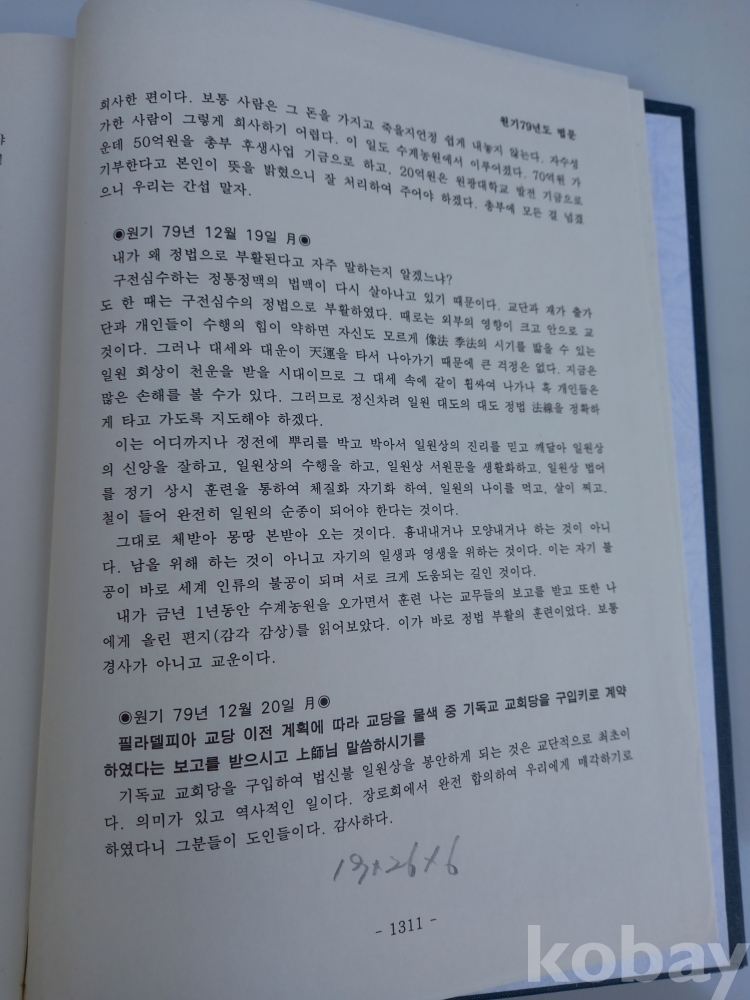 원기79년도 법문
희사한 편이다. 보통 사람은 그 돈을 가지고 죽을지언정 쉽게 내놓지 않는다. 자수성
가한 사람이 그렇게 희사하기 어렵다. 이 일도 수계농원에서 이루어졌다. 70억원 가
운데 50억원을 총부 후생사업 기금으로 하고, 20억원은 원광대학교 발전 기금으로
기부한다고 본인이 뜻을 밝혔으니 잘 처리하여 주어야 하겠다. 총부에 모든 걸 넘겼
으니 우리는 간섭 말자.
◉원기 79년 12월 19일 月◉
내가 왜 정법으로 부활된다고 자주 말하는지 알겠느냐?
구전심수하는 정통정맥의 법맥이 다시 살아나고 있기 때문이다. 교단과 재가 출가
도 한 때는 구전심수의 정법으로 부활하였다. 때로는 외부의 영향이 크고 안으로 교
단과 개인들이 수행의 힘이 약하면 자신도 모르게 像法 季法의 시기를 밟을 수 있는
것이다. 그러나 대세와 대운이 天運을 타서 나아가기 때문에 큰 걱정은 없다. 지금은
일원 회상이 천운을 받을 시대이므로 그 대세 속에 같이 휩싸여 나가나 혹 개인들은
많은 손해를 볼 수가 있다. 그러므로 정신차려 일원 대도의 대도 정법 法線을 정확하
게 타고 가도록 지도해야 하겠다.
이는 어디까지나 정전에 뿌리를 박고 박아서 일원상의 진리를 믿고 깨달아 일원상
의 신앙을 잘하고, 일원상의 수행을 하고, 일원상 서원문을 생활화하고, 일원상 법어
를 정기 상시 훈련을 통하여 체질화 자기화 하여, 일원의 나이를 먹고, 살이 찌고,
철이 들어 완전히 일원의 순종이 되어야 한다는 것이다.
그대로 체받아 몽땅 본받아 오는 것이다. 흉내내거나 모양내거나 하는 것이 아니
다. 남을 위해 하는 것이 아니고 자기의 일생과 영생을 위하는 것이다. 이는 자기 불
공이 바로 세계 인류의 불공이 되며 서로 크게 도움되는 길인 것이다.
내가 금년 1년동안 수계농원을 오가면서 훈련 나는 교무들의 보고를 받고 또한 나
에게 올린 편지(감각 감상)를 읽어보았다. 이가 바로 정법 부활의 훈련이었다. 보통
경사가 아니고 교운이다.
◉원기 79년 12월 20일 月◉
필라델피아 교당 이전 계획에 따라 교당을 물색 중 기독교 교회당을 구입키로 계약
하였다는 보고를 받으시고 上師님 말씀하시기를
기독교 교회당을 구입하여 법신불 일원상을 봉안하게 되는 것은 교단적으로 최초이
다. 의미가 있고 역사적인 일이다. 장로회에서 완전 합의하여 우리에게 매각하기로
하였다니 그분들이 도인들이다. 감사하다.
19x26x6
- 1311 -
kobay